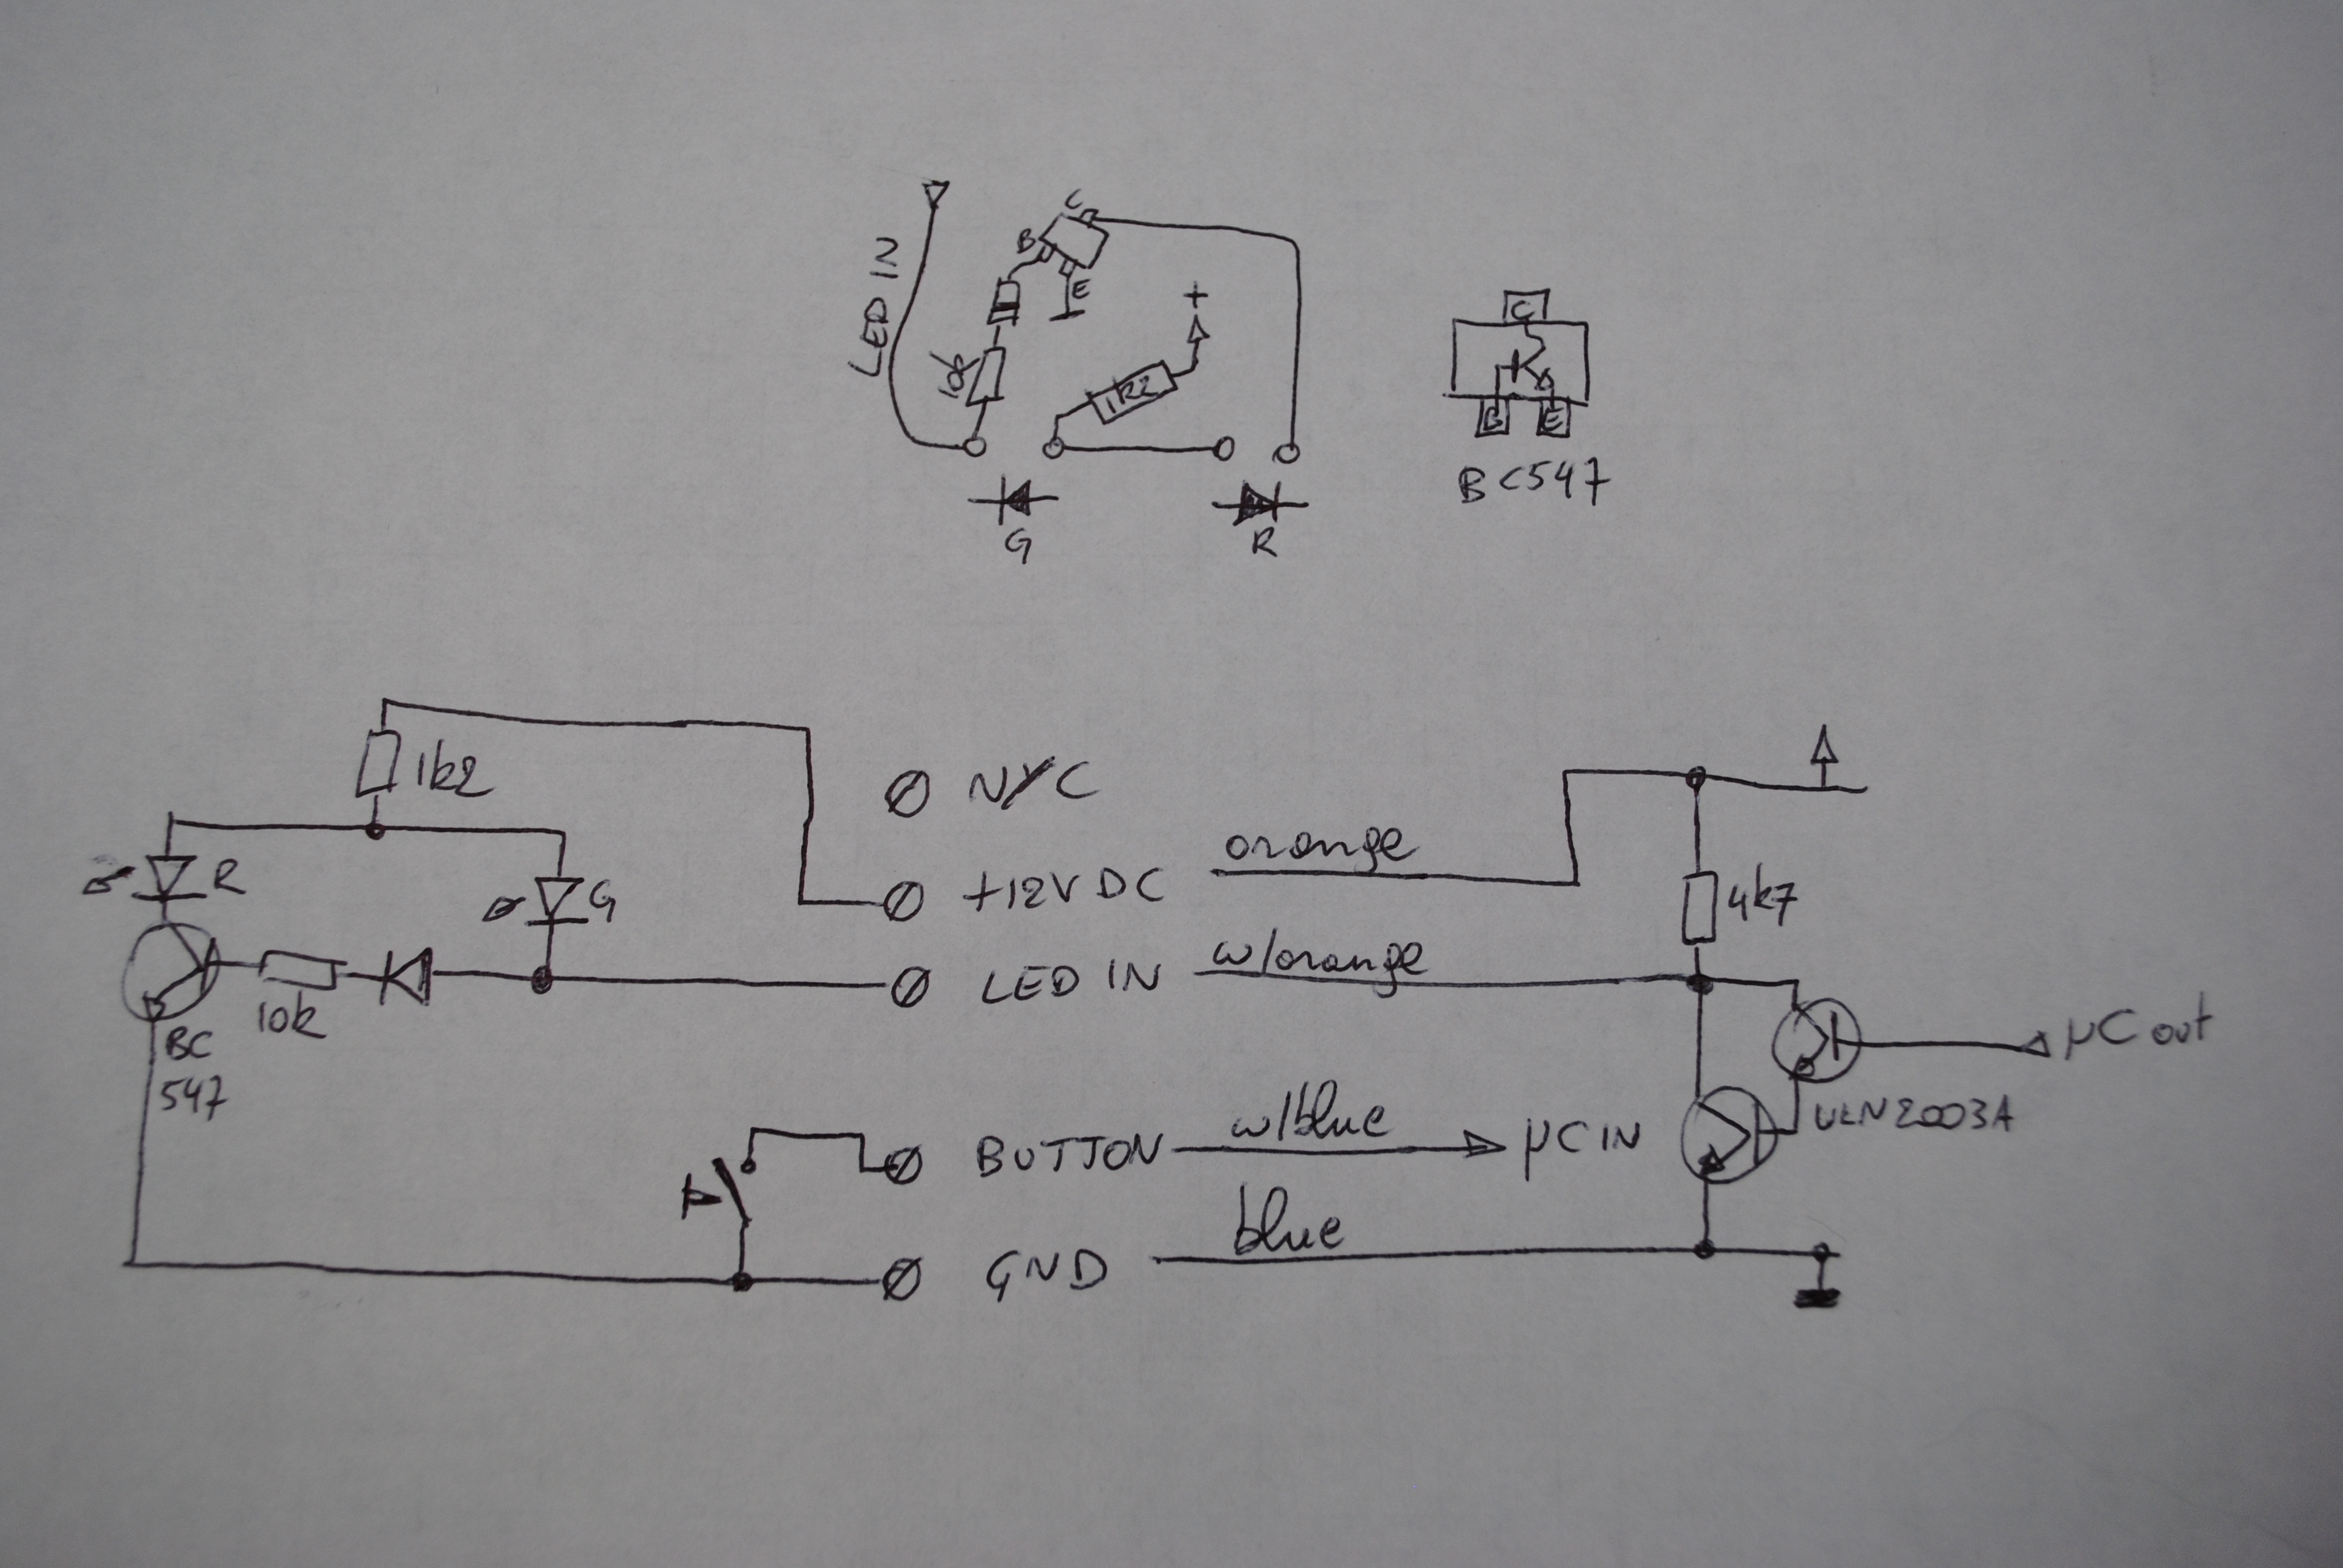 LED IN
C
B
E
+
10k
1k2
G
R
C
B
E
BC547
1k2
R
G
10k
BC
547
N/C
+12V DC
LED IN
BUTTON
GND
orange
w/orange
w/blue
blue
4k7
µC out
ULN2003A
µC IN